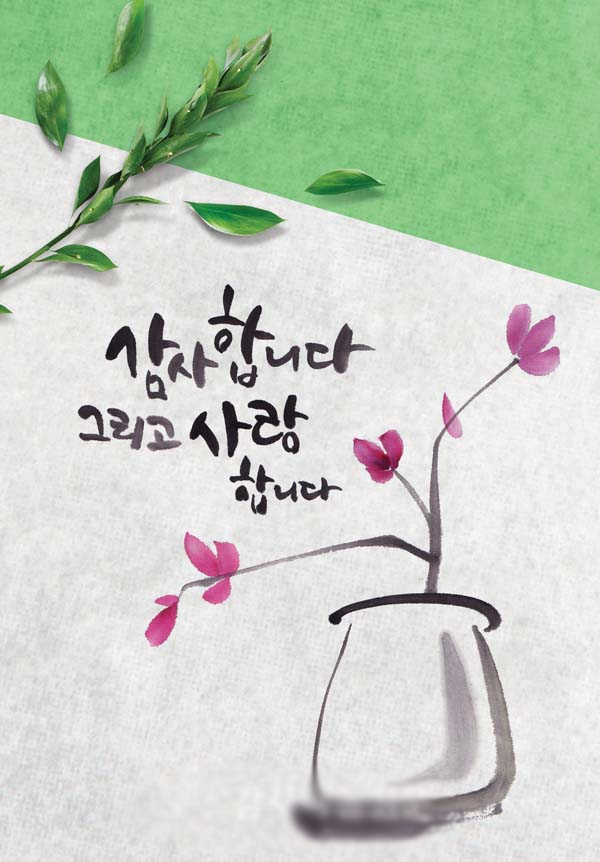 감사합니다
그리고 사랑
합니다